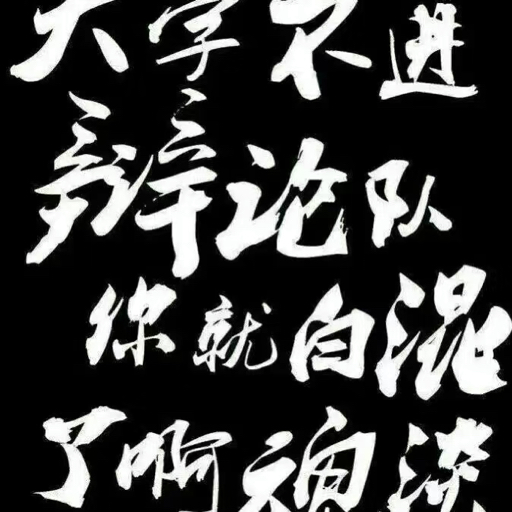 大学不进
辩论队
你就白混
了啊魂淡